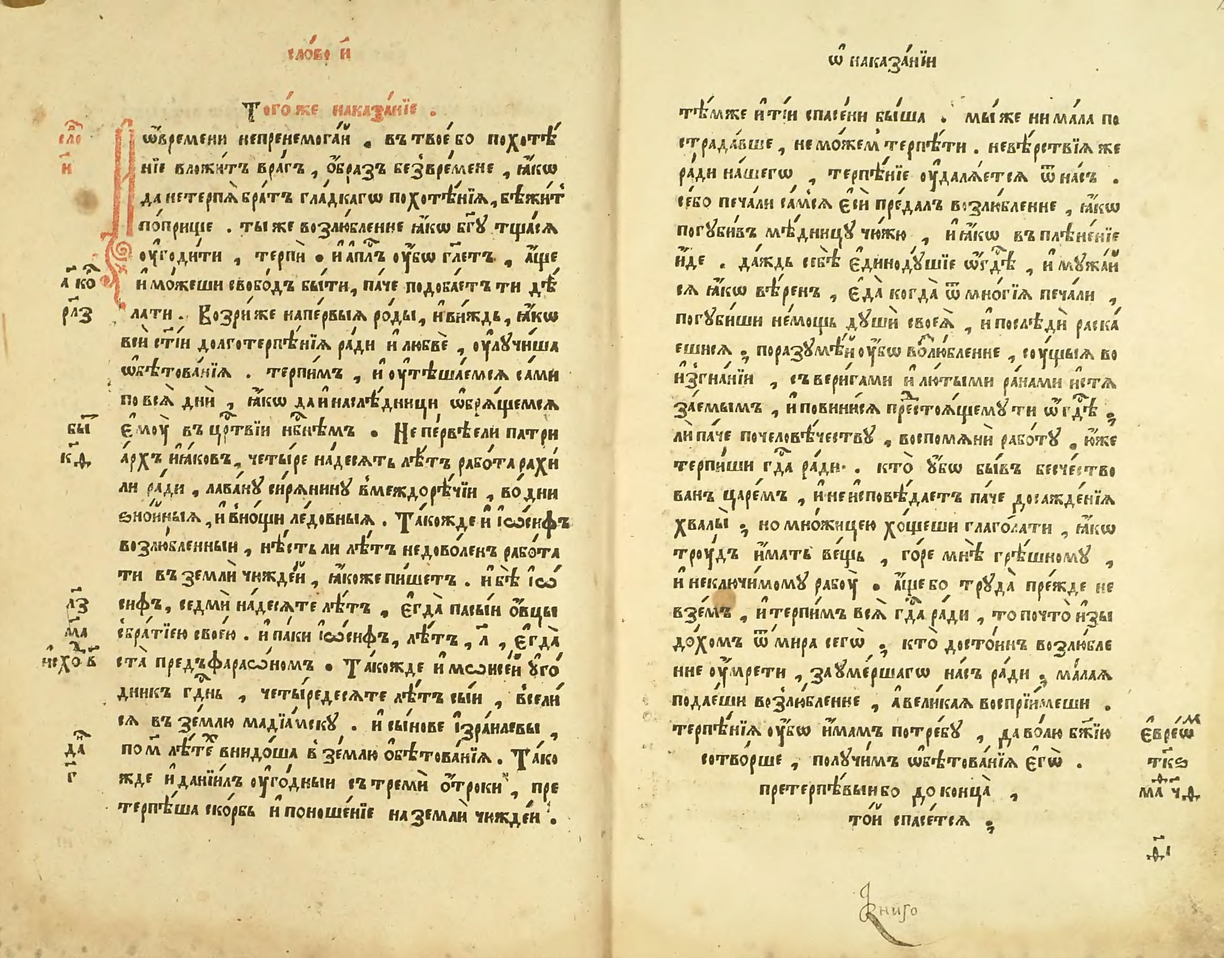 сло́во и҃
Того́же наказа́нїе .
сло́
и҃
Пѡ́времени непренемога́й . въ твое́ бо похотѣ́
нїе вложи́тъ вра́гъ , ѻ҆́бразъ безвре́мене , ꙗ҆́кѡ
да нетерпѧ̀ бра́тъ гла́дкагѡ похотѣ́нїѧ , бѣжи́т
по́прище . ты́ же возлю́бленне ꙗ҆́кѡ бг҃ꙋ тща́сѧ
оу҆годи́ти , терпѝ . и҆ а҆пⷭ҇лъ оу҆́бѡ гл҃етъ , а҆́ще
а коⷬ҇
и҆ мо́жеши свобо́дъ бы́ти , па́че подоба́етъ ти дѣ́
рл҃з
лати . Возри́ же напе́рвыѧ ро́ды , и҆ ви́ждь , ꙗ҆́кѡ
всѝ ст҃і́и долготерпѣ́нїѧ ра́ди и҆ любвѐ , оу҆лꙋчи́ша
ѡ҆бѣтова́нїѧ . терпи́мъ , и҆ оу҆тѣша́емсѧ са́ми
по всѧ̀ дни̑ , ꙗ҆́кѡ да и҆ наслѣ́дницы ѡ҆брѧ́щемсѧ
бы҃
є҆мꙋ̀ въ црⷭ҇твїи нбⷭ҇нѣмъ . Не пе́рвѣе ли патри
к҃д
а́рхъ и҆ꙗ́ковъ , четы́ре на́десѧть лѣ́тъ рабо́та рахи́
ли ра́ди , лава́нꙋ си́рѧнинꙋ в междорѣ́чїи , во́ дни
ѕно́йныѧ , и҆ в но́щи ле́довныѧ . Та́кожде и҆ і҆ѡ́сифъ
возлю́бленныи , нѣ́сть ли лѣ́тъ недово́ленъ рабо́та
ти въ землѝ чю́ждей , ꙗ҆́коже пи́шетъ . и҆ бѣ̀ і҆ѡ́
л҃з
сифъ , се́дмь на́десѧте лѣ́тъ , є҆гда̀ пасы́и ѻ҆́вцы
ма
с бра́тїею свое́ю . и҆ па́ки і҆ѡ́сифъ , лѣ́тъ , л҃ , є҆гда̀
и҆схо́ в҃
ста̀ предъ фараѡ́номъ . Та́кожде и҆ мѡисе́й оу҆го́
дникъ гдⷭ҇нь , четы́редесѧте лѣ́тъ сы́и , всели́
сѧ въ зе́млю мадїа́мскꙋ . и҆ сы́нове і҆зра́илевы ,
да҃
по м҃ лѣ́тѣⷯ внидо́ша в зе́млю ѻ҆бѣтова́нїѧ . Та́ко
г҃
жде и҆ данїи́лъ оу҆го́дныи съ тремѝ ѻ҆́троки , пре
терпѣ́ша ско́рбь и҆ поноше́нїе на землѝ чю́ждей .
ѡ҆ наказа́нїи
тѣ́мже и҆ ті́и спасе́ни бы́ша . мы́ же ни ма́ла по
страда́вше , не мо́жем терпѣ́ти . невѣ́рствїѧ же
ра́ди на́шегѡ , терпѣ́нїе оу҆далѧ́етсѧ ѿ на́съ .
се́ бо печа́ли са́мсѧ є҆сѝ преда́лъ возлю́бленне , ꙗ҆́кѡ
погꙋби́въ мѣ́дницꙋ чю́жю , и҆ ꙗ҆́кѡ въ плѣне́нїе
и҆́де . да́ждь себѣ̀ є҆динодꙋ́шїе ѡ҆ гдⷭ҇ѣ , и҆ мꙋжа́й
сѧ ꙗ҆́кѡ вѣ́ренъ , є҆да̀ когда̀ ѿ мно́гїѧ печа́ли ,
погꙋби́ши не́мощь дꙋшѝ своеѧ̀ , и҆ послѣдѝ раска́
ешисѧ ; поразꙋмѣ́й оу҆́бѡ возлю́бленне , сꙋ́щыѧ во
и҆згна́нїи , съ вери́гами и҆ лю́тыми ра́нами и҆стѧ
за́емымъ , и҆ повини́сѧ предстоѧ́щемꙋ ти ѡ҆ гдⷭ҇ѣ ;
ли па́че по человѣ́чествꙋ , воспомѧнѝ рабо́тꙋ , ю҆́же
терпи́ши гдⷭ҇а ра́ди . кто̀ оу҆́бѡ бы́въ бесче́ство
ванъ царе́мъ , и҆ не и҆сповѣ́даетъ па́че досажде́нїѧ
хвалы̀ ; но мно́жицею хо́щеши глаго́лати , ꙗ҆́кѡ
трꙋ́дъ и҆́мать ве́щь , го́ре мнѣ̀ грѣ́шномꙋ ,
и҆ неключи́момꙋ рабꙋ̀ . а҆́ще бо трꙋда̀ пре́жде не
взе́мъ , и҆ терпи́мъ всѧ̀ гдⷭ҇а ра́ди , то почто̀ и҆зы
до́хомъ ѿ ми́ра сегѡ̀ ; кто̀ досто́инъ возлю́бле
нне оу҆мре́ти , за оу҆ме́ршаго на́съ ра́ди ; ма́лаѧ
подае́ши возлю́бленне , а҆ вели́каѧ воспрїи́меши .
терпѣ́нїѧ оу҆́бѡ и҆́мамъ потре́бꙋ , да во́лю бж҃їю
є҆вре́ѡⷨ
сотво́рше , полꙋчи́мъ ѡ҆бѣтова́нїѧ є҆гѡ̀ .
тк҃ѕ
претерпѣ́выи бо до конца̀ ,
маⷴ҇ ч҃д
то́й спасе́тсѧ ;
д҃і